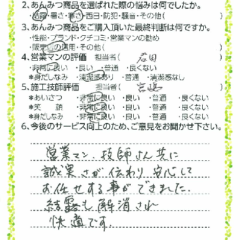 2.あんみつ商品を選ばれた際の悩みは何でしたか。
・暑さ・寒さ・西日・防犯・騒音・その他(
3.あんみつ商品をご購入頂いた最終判断は何ですか。
・性能・ブランド・クチコミ・営業マンの勧め
の運用・その他(
4.営業マンの評価 担当者( 石田
・非常に良い ・良い ・普通 ・良くない
*身だしなみ ・清潔感あり ・普通 ・清潔感なし
5.施工技師評価 担当者( 宮崎
*あいさつ ・非常に良い ・良い ・普通 ・良くない
*笑顔 ・非常に良い ・良い ・普通 ・良くない
*身だしなみ ・非常に良い ・良い ・普通 ・良くない
6.今後のサービス向上のため、ご意見をお聞かせ下さい。
営業マン、技師さん共に
誠実さが伝わり、安心して
お任せする事ができました。
結露も解消され
快適です。